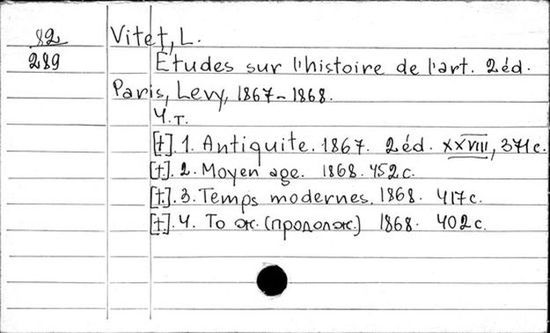 82
289
Vitet, L.
Etudes sur l'histoire de l'art. 2éd.
Paris, Levy, 1867-1868.
4.т.
[t]. 1. Antiquite. 1867. 2éd. XXVIII, 371c.
[t]. 2. Moyen age. 1868. 452c.
[t]. 3. Temps modernes. 1868. 417c.
[t]. 4. То ж. (продолж.) 1868. 402c.